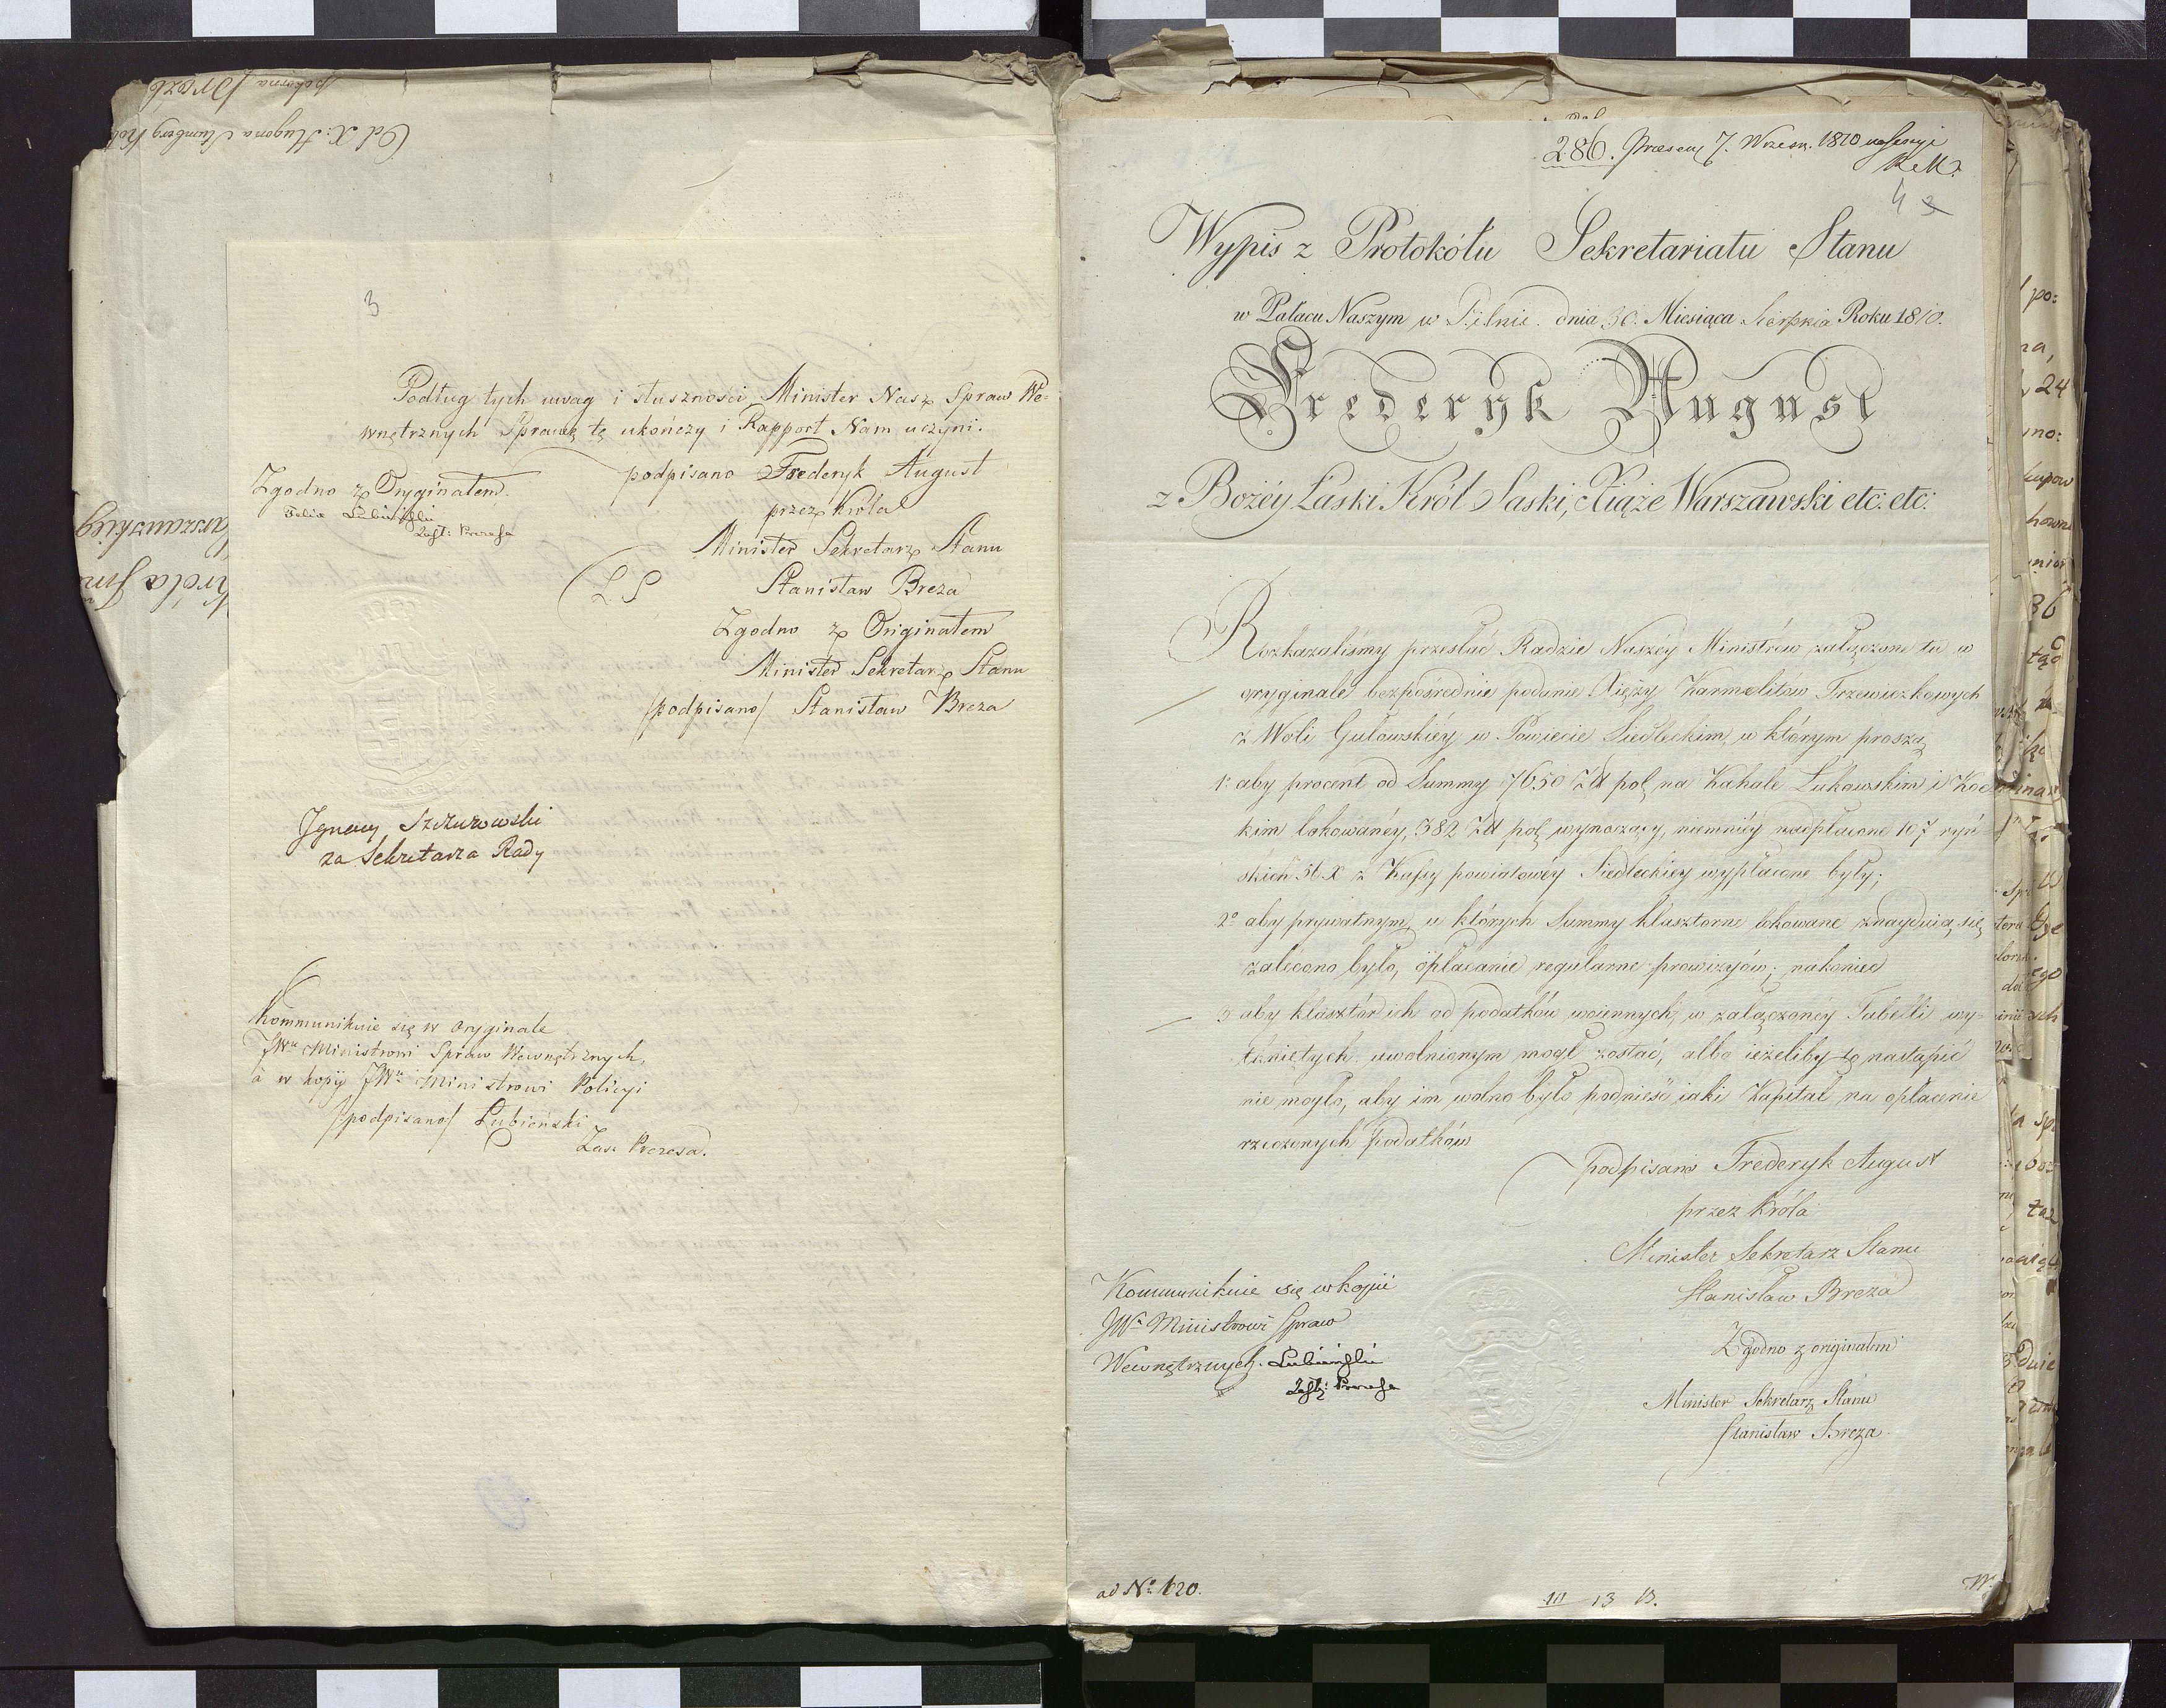 3
Podług tych uwag i słuszności Minister Nasz Spraw We-
wnętrznych Sprawę tę ukończy i Rapport Nam uczyni.
podpisano Frederyk August
przez Króla
Minister Sekretarz Stanu
LS
Stanisław Breza
Zgodno z Originałem
Minister Sekretarz Stanu
/podpisano/ Stanisław Breza
Zgodno z Oryginałem
Felix Lubieński
Zast: Prezesa
Ignacy Szczurowski
za Sekretarza Rady
Kommunikuie się w Oryginale
JWu Ministrowi Spraw Wewnętrznych,
a w kopij JWu Ministrowi Policyi
/podpisano/ Lubieński
Zas: Prezesa.
286. Praesent 7. Wrześn. 1810 na Sessyi
R.M.
4 3
Wypis z Protokółu Sekretariatu Stanu
w Pałacu Naszym w Pilnie. dnia 30. Miesiąca Sierpnia Roku 1810.
Frederyk August
z Bożéy Łaski Król Saski, Xiąże Warszawski etc: etc:
Rozkazaliśmy przesłać Radzie Naszéy Ministrów załączone tu w
oryginale bezpośrednie podanie Xięży Karmelitów Trzewiczkowych
z Woli Gułowskiéy w Powiecie Siedleckim, w którym proszą
1o aby procent od Summy 7650 Zł pol na Kahale Łukowskim i Koc
kim lokowanéy, 382 Zł pol wynoszący, niemniéy nadpłacone 107 ryń
skich 51 X z Kassy powiatowéy Siedleckiey wypłacone były;
2o aby prywatnym, u których Summy klasztorne lokowane znayduią się
zalécono było, opłacanie regularne prowizyów; nakoniec
3 aby klasztor ich od podatków woiennych, w załączonéy Tabelli wy-
tkniętych uwolnionym mógł zostać, albo ieżeliby to nastąpić
nie mogło, aby im wolno było podnieść iaki Kapitał na opłacenie
rzeczonych podatków
podpisano Frederyk August
przez Króla
Minister Sekretarz Stanu
Stanisław Breza
Zgodno z originałem
Minister Sekretarz Stanu
Stanisław Breza
Kommunikuie się w kopii
JWu Ministrowi Spraw
Wewnętrznych. Lubieński
Zast: Prezesa
ad No 620.
13 B.